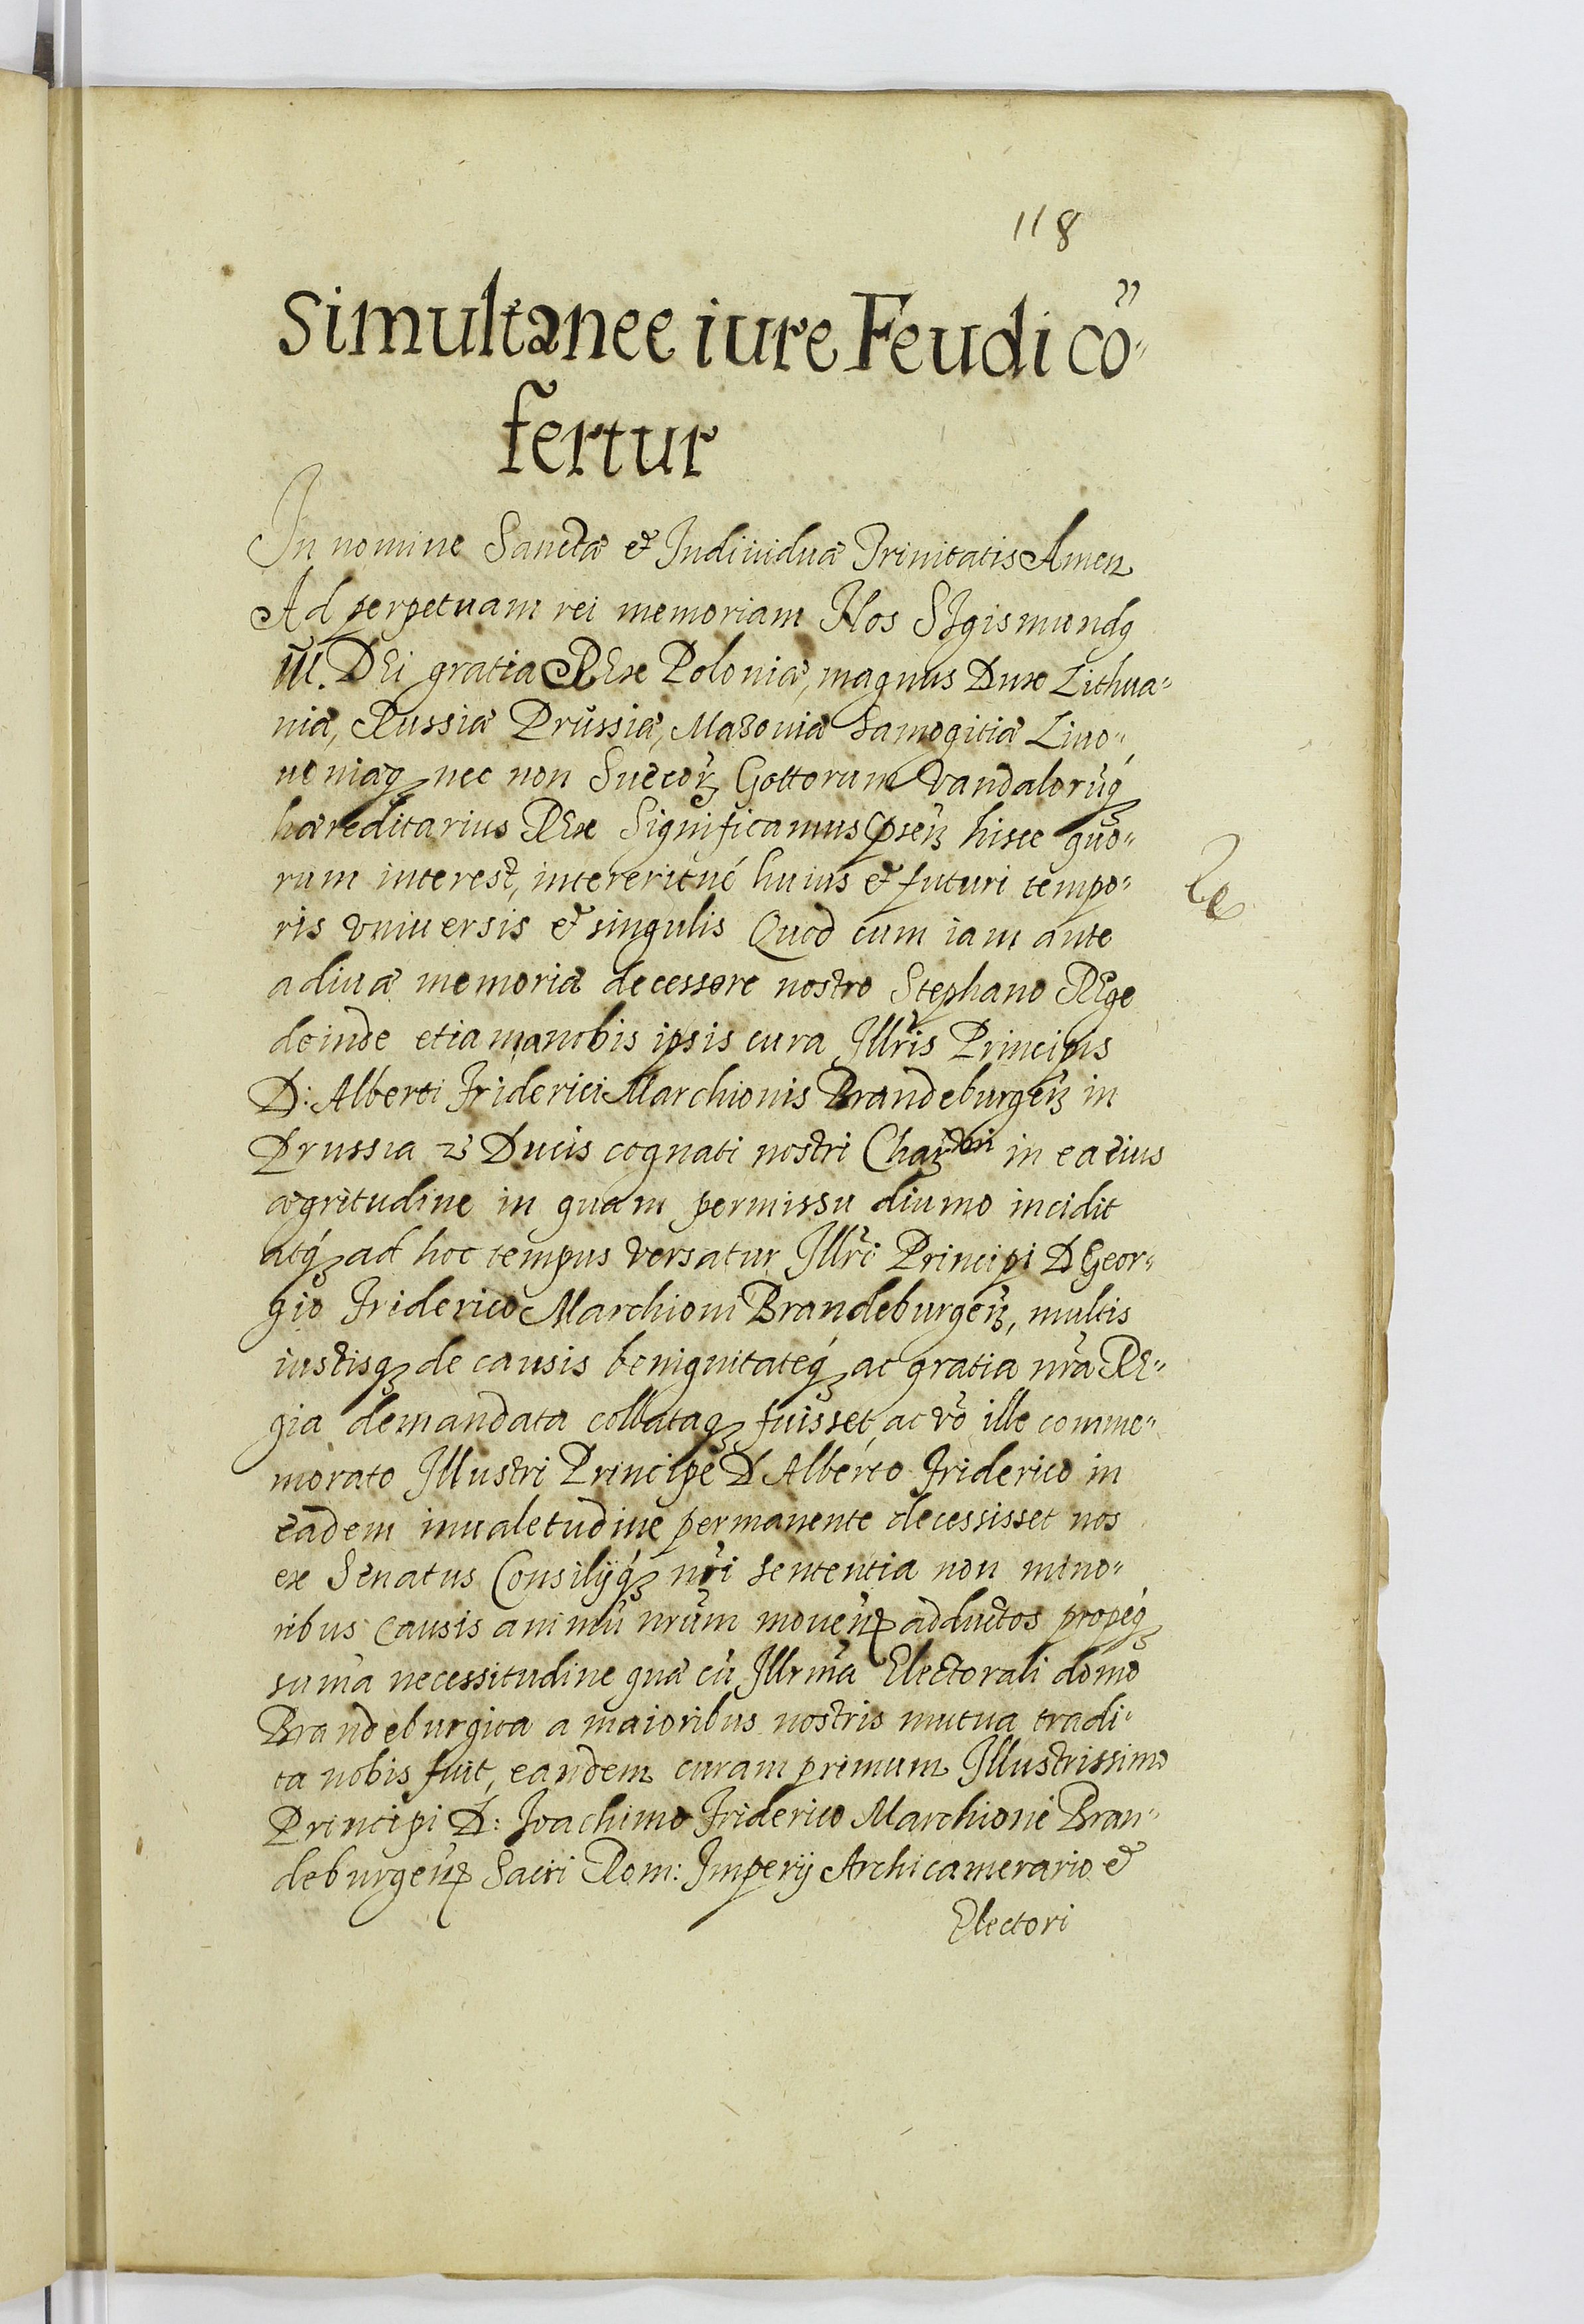 118
Simultanee iure Feudi cō-
fertur
In nomine Sanctæ et Indiuiduæ Trinitatis Amen
Ad perpetuam rei memoriam Nos SIgismundꝯ
III. DEi gratia REx Poloniæ, magnus Dux Lithua-
niæ, Russiæ Prussiæ, Masouiæ Samogitiæ Liuo-
uoniæqꝫ nec non Suecorꝫ Gottorum Vandalorūqꝫ
hæreditarius REx Significamus pn̄seꝫ hisce quo-
rum interest, intereritué huius et futuri tempo-
ris vniuersis et singulis Quod cum iam ante
a diuæ memoriæ decessore nostro Stephano REge
deinde etiam a nobis ipsis cura Illr̄is Principis
D: Alberti Friderici Marchionis Brandeburgeñꝫ in
Prussia etc Ducis cognati nostri Chariꝫmi in ea eius
ægritudine in quam permissu diuino incidit
atqꝫ ad hoc tempus versatur Illr̄i Principi D Geor-
gio Friderico Marchioni Brandeburgeñꝫ, multis
iustisqꝫ de causis benignitateqꝫ ac gratia nr̄a RE-
gia demandata collataqꝫ fuisset, ac vō ille comme-
morato Illustri Principe D Alberto Friderico in
eadem inualetudine permanente decessisset nos
ex Senatus Consilijqꝫ nr̄i sententia non mino-
ribus causis animū nr̄um moueñ adductos propeqꝫ
suma necessitudine quæ cū Illrm̄a Electorali domo
Brandeburgica a maioribus nostris mutua tradi-
ta nobis fuit, eandem curam primum Illustrissimo
Principi D: Joachimo Friderico Marchioni Bran-
deburgeñ Sacri Rom: Imperij Archicamerario et
Electori